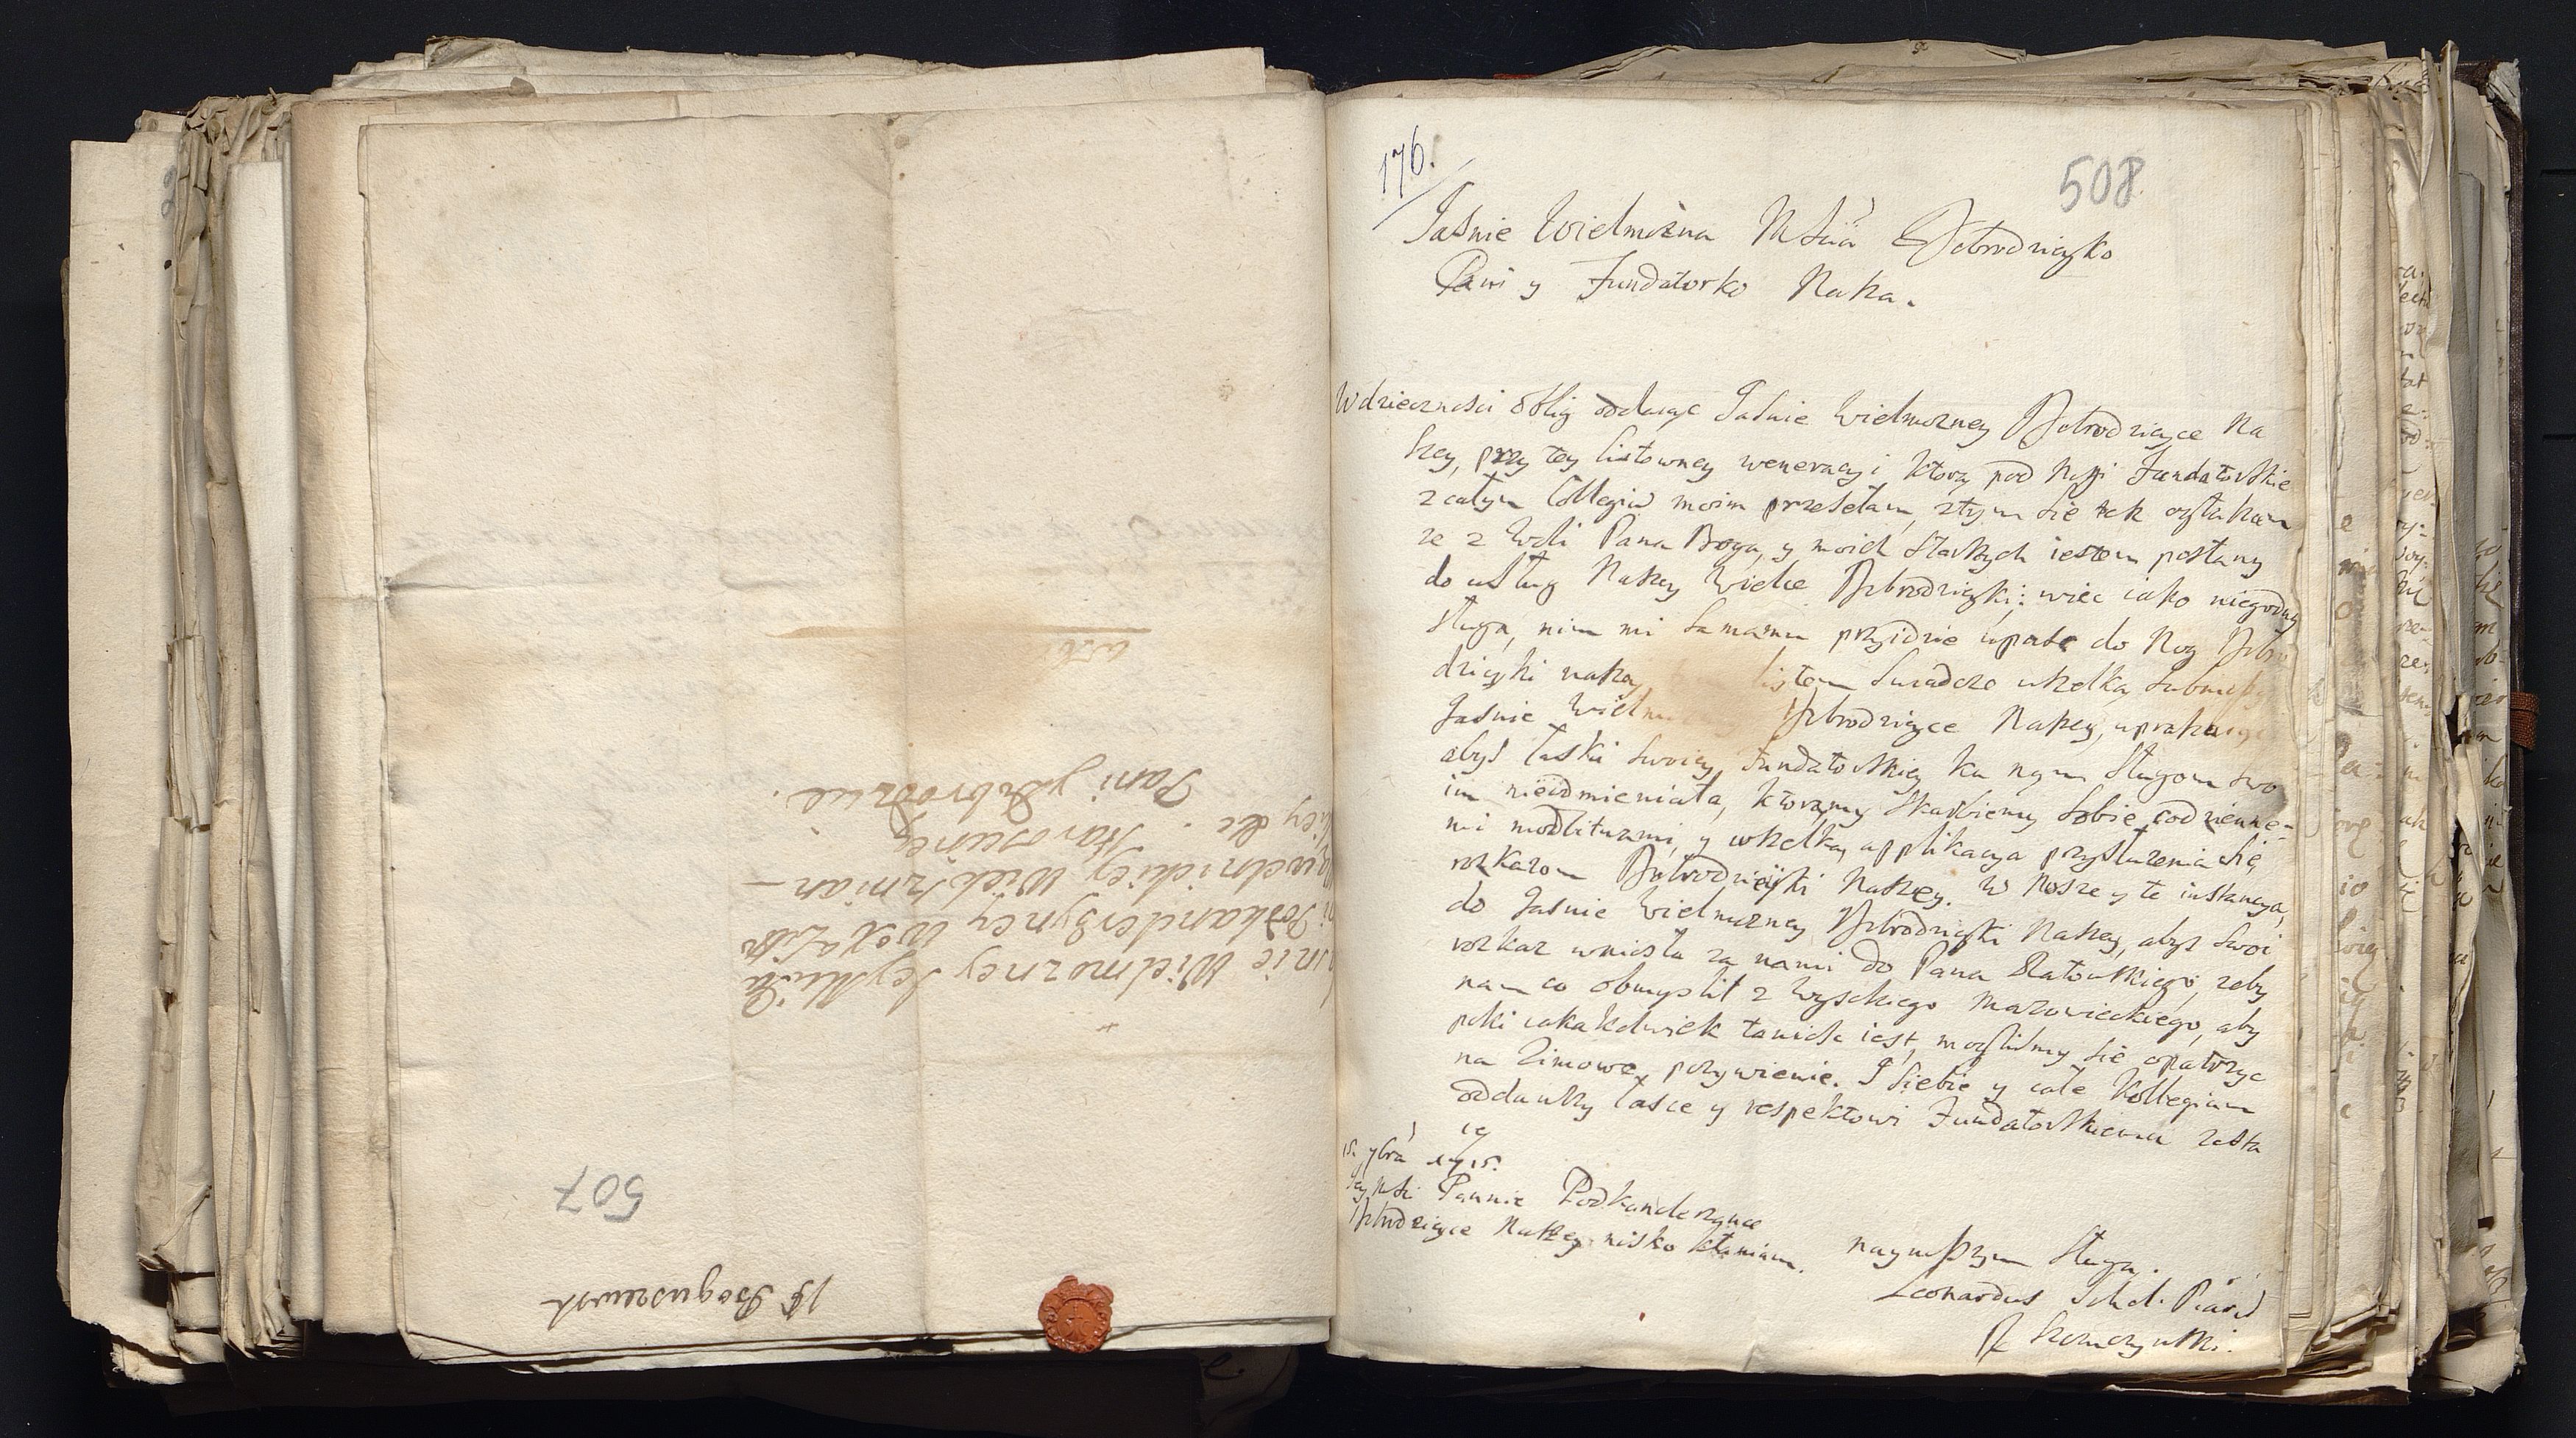 Jasnie Wielmozney
Podkanclerzyney W X a Litt
Wielkey
Pani y Dobrodzice.
507
176.
508
Jaśnie Wielmożna Mścia Dobrodzieyko
Pani y Fundatorko Nasza.
Wdzieczności oblig oddaiąc Jaśnie Wielmożney Dobrodzieyce Na
szey, przy tey listowney weneracyi ktorą pod nogi Fundatorskie
z całym Collegiū moim przesełam, z tym się
ze z Woli Pana Boga, y moich Starszych iestem posłany
do usług Naszey Wielce Dobrodzieyki: więc iako niegodny
sługa, nim mi samemu przyidzie upaść do Nog Dobro
dzieyki naszey listem swiadcze wszelką submissyą
Jaśnie Wielmozney Dobrodzieyce Naszey, upraszaiąc
abyś łaski swoiey Fundatorskiey ku nam Sługom swo
im nieodmieniała, ktorą my skarbiemy sobie codzienne-
mi modlitwami, y wszelką applikacya przysłuzenia się,
rozkazom Dobrodzieyki Naszey. W noszę y te instancya,
do Jasnie Wielmozney Dobrodzieyki Naszey, abyś swoi
rozkaz wniosła za nami do Pana Ratowskiego, zeby
nam co obmyślił z Wysokiego Mazowieckiego, aby
poki iakakolwiek taniość iest, moglismy się opatrzyc
na Zimowe pozywienie. I siebie y całe Kollegium
oddawszy łasce y respektowi Fundatorskiemu zosta
ię
15. 7bra 1715.
Jey Mści Pannie Podkanclerzance
Dobrodzieyce Naszey nisko kłaniam.
naynizszym Sługą.
Leonardus Schol. Piarū